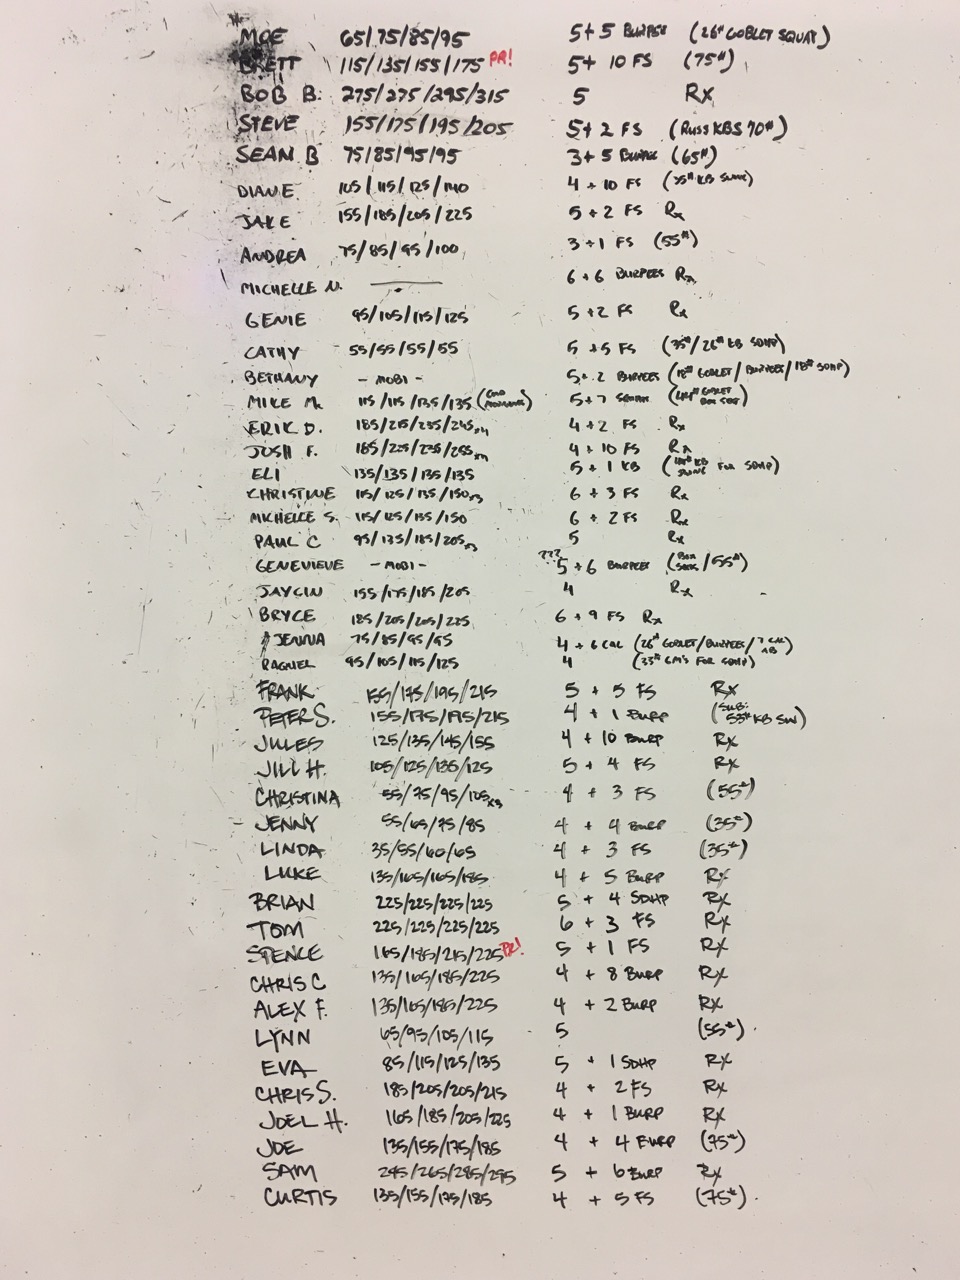 MOE 65/75/85/95 5+5 BURPEE (26# GOBLET SQUAT)
BRETT 115/135/155/175 PR! 5+ 10 FS (75#)
BOB B. 275/275/295/315 5 RX
STEVE 155/175/195/205 5+2 FS (RUSS KBS 70#)
SEAN B 75/85/95/95 3+5 BURPEE (65#)
DIANE 105/115/125/140 4 + 10 FS (35# KB SWING)
JAKE 155/185/205/225 5 + 2 FS Rx
ANDREA 75/85/95/100 3 + 1 FS (55#)
MICHELLE N. — 6 + 6 BURPEES Rx
GENIE 95/105/115/125 5 + 2 FS Rx
CATHY 55/55/55/55 5 + 5 FS (35#/26# KB SDHP)
BETHANY - MOBI - 5 + 2 BURPEES (18# GOBLET/BURPEES/18# SDHP)
MIKE M. 115/115/135/135 (GOOD MORNINGS) 5 + 7 (44# GOBLET BOX SQT)
ERIK D. 185/215/235/245x4 4 + 2 FS Rx
JOSH F. 185/225/235/255 4 + 10 FS Rx
ELI 135/135/135/135 5 + 1 KB (KB SWING FOR SDHP)
CHRISTINE 115/125/135/150x3 6 + 3 FS Rx
MICHELLE S. 115/125/135/150 6 + 2 FS Rx
PAUL C 95/135/185/205x3 5 Rx
GENEVIEVE - MOBI - ??? 5 + 6 BURPEES (BOX /55#)
JAYCIN 155/175/185/205 4 Rx
BRYCE 185/205/205/225 6 + 9 FS Rx
JENNA 75/85/95/95 4 + 6 CAL (26# GOBLET/BURPEES/7 CAL AB)
RACHEL 95/105/115/125 4 (33# GM'S FOR SDHP)
FRANK 155/175/195/215 5 + 5 FS RX
PETER S. 155/175/195/215 4 + 1 BURP (SUB: 53# KB SW)
JULES 125/135/145/155 4 + 10 BURP RX
JILL H. 105/125/135/125 5 + 4 FS RX
CHRISTINA 55/75/95/105x3 4 + 3 FS (55#)
JENNY 55/65/75/85 4 + 4 BURP (35#)
LINDA 35/55/60/65 4 + 3 FS (35#)
LUKE 135/165/165/185 4 + 5 BURP RX
BRIAN 225/225/225/225 5 + 4 SDHP RX
TOM 225/225/225/225 6 + 3 FS RX
SPENCE 165/185/215/225 PR! 5 + 1 FS RX
CHRIS C 135/165/185/225 4 + 8 BURP RX
ALEX F. 135/165/185/225 4 + 2 BURP RX
LYNN 65/95/105/115 5 (55#)
EVA 85/115/125/135 5 + 1 SDHP RX
CHRIS S. 185/205/205/215 4 + 2 FS RX
JOEL H. 165/185/205/225 4 + 1 BURP RX
JOE 135/155/175/185 4 + 4 BURP (75#)
SAM 245/265/285/295 5 + 6 BURP RX
CURTIS 135/155/175/185 4 + 5 FS (75#)